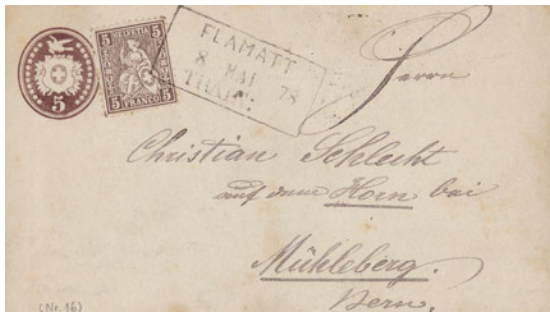 5
5 HELVETIA 5
5 FRANCO 5
FLAMATT
8 MAI 78
TRAIN.
Herrn
Christian Schlecht
auf dem Horn bei
Mühleberg.
Bern.
(Nr. 16)